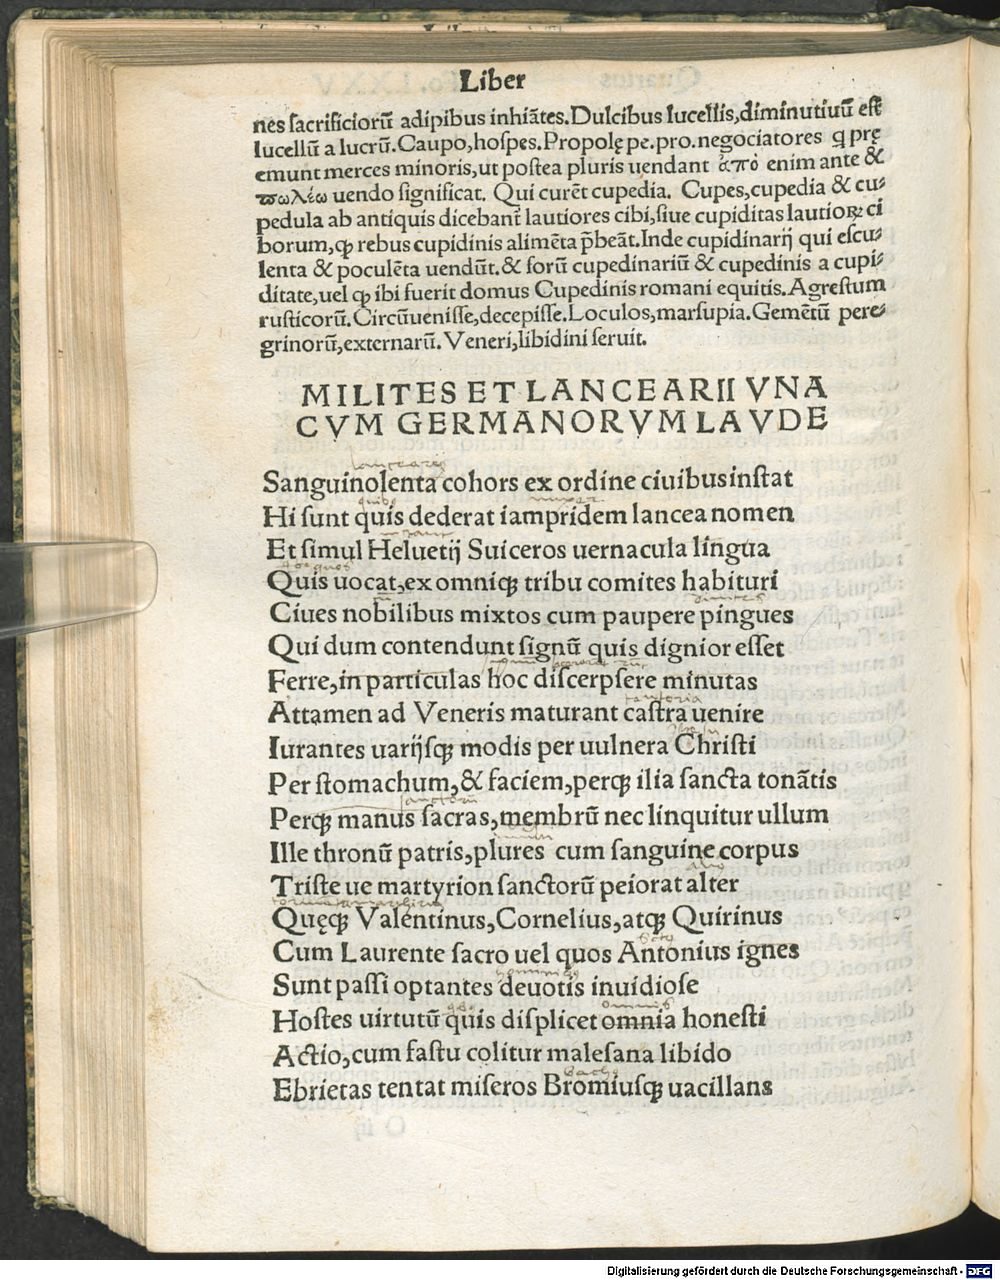 Liber
nes sacrificiorū adipibus inhiātes. Dulcibus lucellis, diminutiuū est
lucellū a lucrū. Caupo, hospes. Propolę pe. pro. negociatores q̄ prę
emunt merces minoris, ut postea pluris uendant ἀπὸ enim ante &
πωλέω uendo significat. Qui curēt cupedia. Cupes, cupedia & cu-
pedula ab antiquis dicebant̄ lautiores cibi, siue cupiditas lautioꝝ ci
borum, ꝙ rebus cupidinis alimēta p̄beāt. Inde cupidinarij qui escu-
lenta & poculēta uendūt. & forū cupedinariū & cupedinis a cupi-
ditate, uel ꝙ ibi fuerit domus Cupedinis romani equitis. Agrestum
rusticorū. Circūuenisse, decepisse. Loculos, marsupia. Gemētū pere-
grinorū, externarū. Veneri, libidini seruit.
MILITES ET LANCEARII VNA
CVM GERMANORVM LAVDE
lanceares
Sanguinolenta cohors ex ordine ciuibus instat
quibus nuper
Hi sunt quis dederat iampridem lancea nomen
Et simul Heluetij Suiceros uernacula lingua
Quis uocat, ex omniq; tribu comites habituri
diuites
Ciues nobilibus mixtos cum paupere pingues
Qui dum contendunt signū quis dignior esset
Ferre, in particulas hoc discerpsere minutas
Attamen ad Veneris maturant castra uenire
Iurantes uarijsq; modis per uulnera Christi
Per stomachum, & faciem, perq; ilia sancta tonātis
Perq; manus sacras, membrū nec linquitur ullum
Ille thronū patris, plures cum sanguine corpus
alius
Triste ue martyrion sanctorū peiorat alter
Quęq; Valentinus, Cornelius, atq; Quirinus
Cum Laurente sacro uel quos Antonius ignes
Sunt passi optantes deuotis inuidiose
omnis
Hostes uirtutū quis displicet omnia honesti
Actio, cum fastu colitur malesana libido
Ebrietas tentat miseros Bromiusq; uacillans
Digitalisierung gefördert durch die Deutsche Forschungsgemeinschaft - DFG